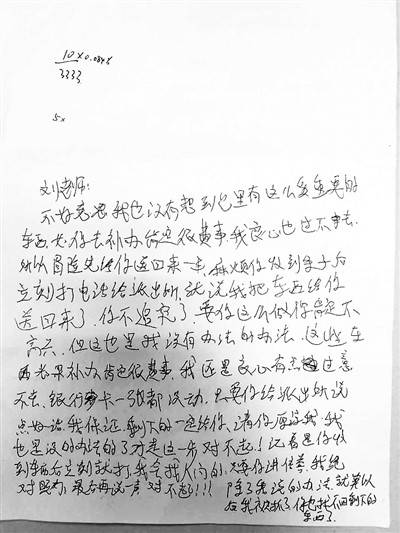 10×0.084
3333
5×
刘老师:
不好意思我也没有想到包里有这么多重要的
东西.你去补办肯定很费事.我良心也过不去.
所以首先先给你送回来一点.麻烦你收到东子后
立刻打电话给派出所.就说我把东西给你
送回来了.你不追究了.要你这么做你肯定不
高兴.但这也是我没有办法的办法.这些东
西如果补办肯也很费事.我还是良心有点过意
不去.银行卡一张都没动.只要你给派出所说
点好话.我保证剩下的一定给你.请你原谅我.我
也是没的办法的了才走这一步.对不起!记着是你收
到东西后立刻就打.我会找人问的.只要你讲信誉.我绝
对照办.最后再说一声对不起!!!
除了我说的办法.就算以
后我被抓了.你也找不回剩下的
东西了.